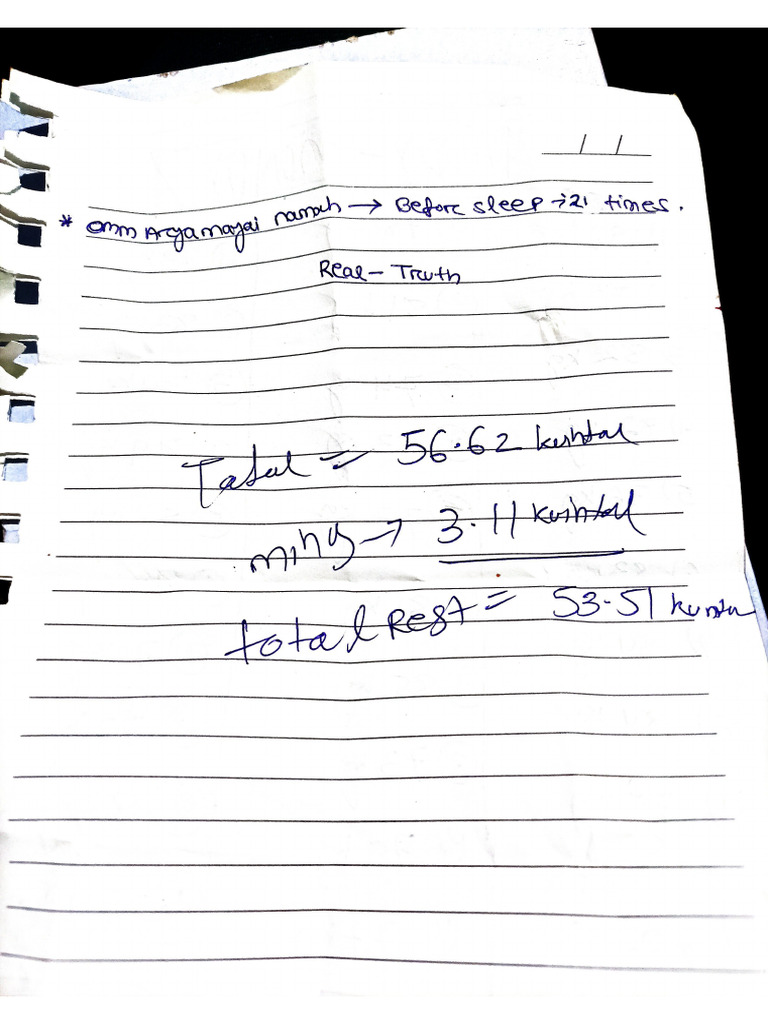 / /
* omm Aryamayai namah → Before sleep → 21 times.
Real - Truth
Total = 56.62 kuintal
→ 3.11 kuintal
total Rest = 53.51